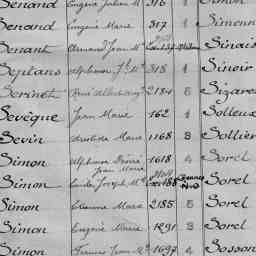 Senand Eugène Julien M. 316 1 Simon
Senand Eugène Marie 317 1 Simenn
Senant Armand Jean Mie Sinais
Septans Alphonse J. M. 318 1 Sinoir
Serinet René 2184 5 Sizares
Sevêque Jean Marie 162 1 Solleux
Sevin Aristide Marie 1168 3 Sollier
Simon Alphonse Désiré Jean Marie 1618 4 Sorel
Simon Joseph M. Sorel
Simon Etienne Marie 2185 5 Sorel
Simon Eugène Marie 1291 3 Sorel
Simon Francis Jean M. 1697 4 Sosson